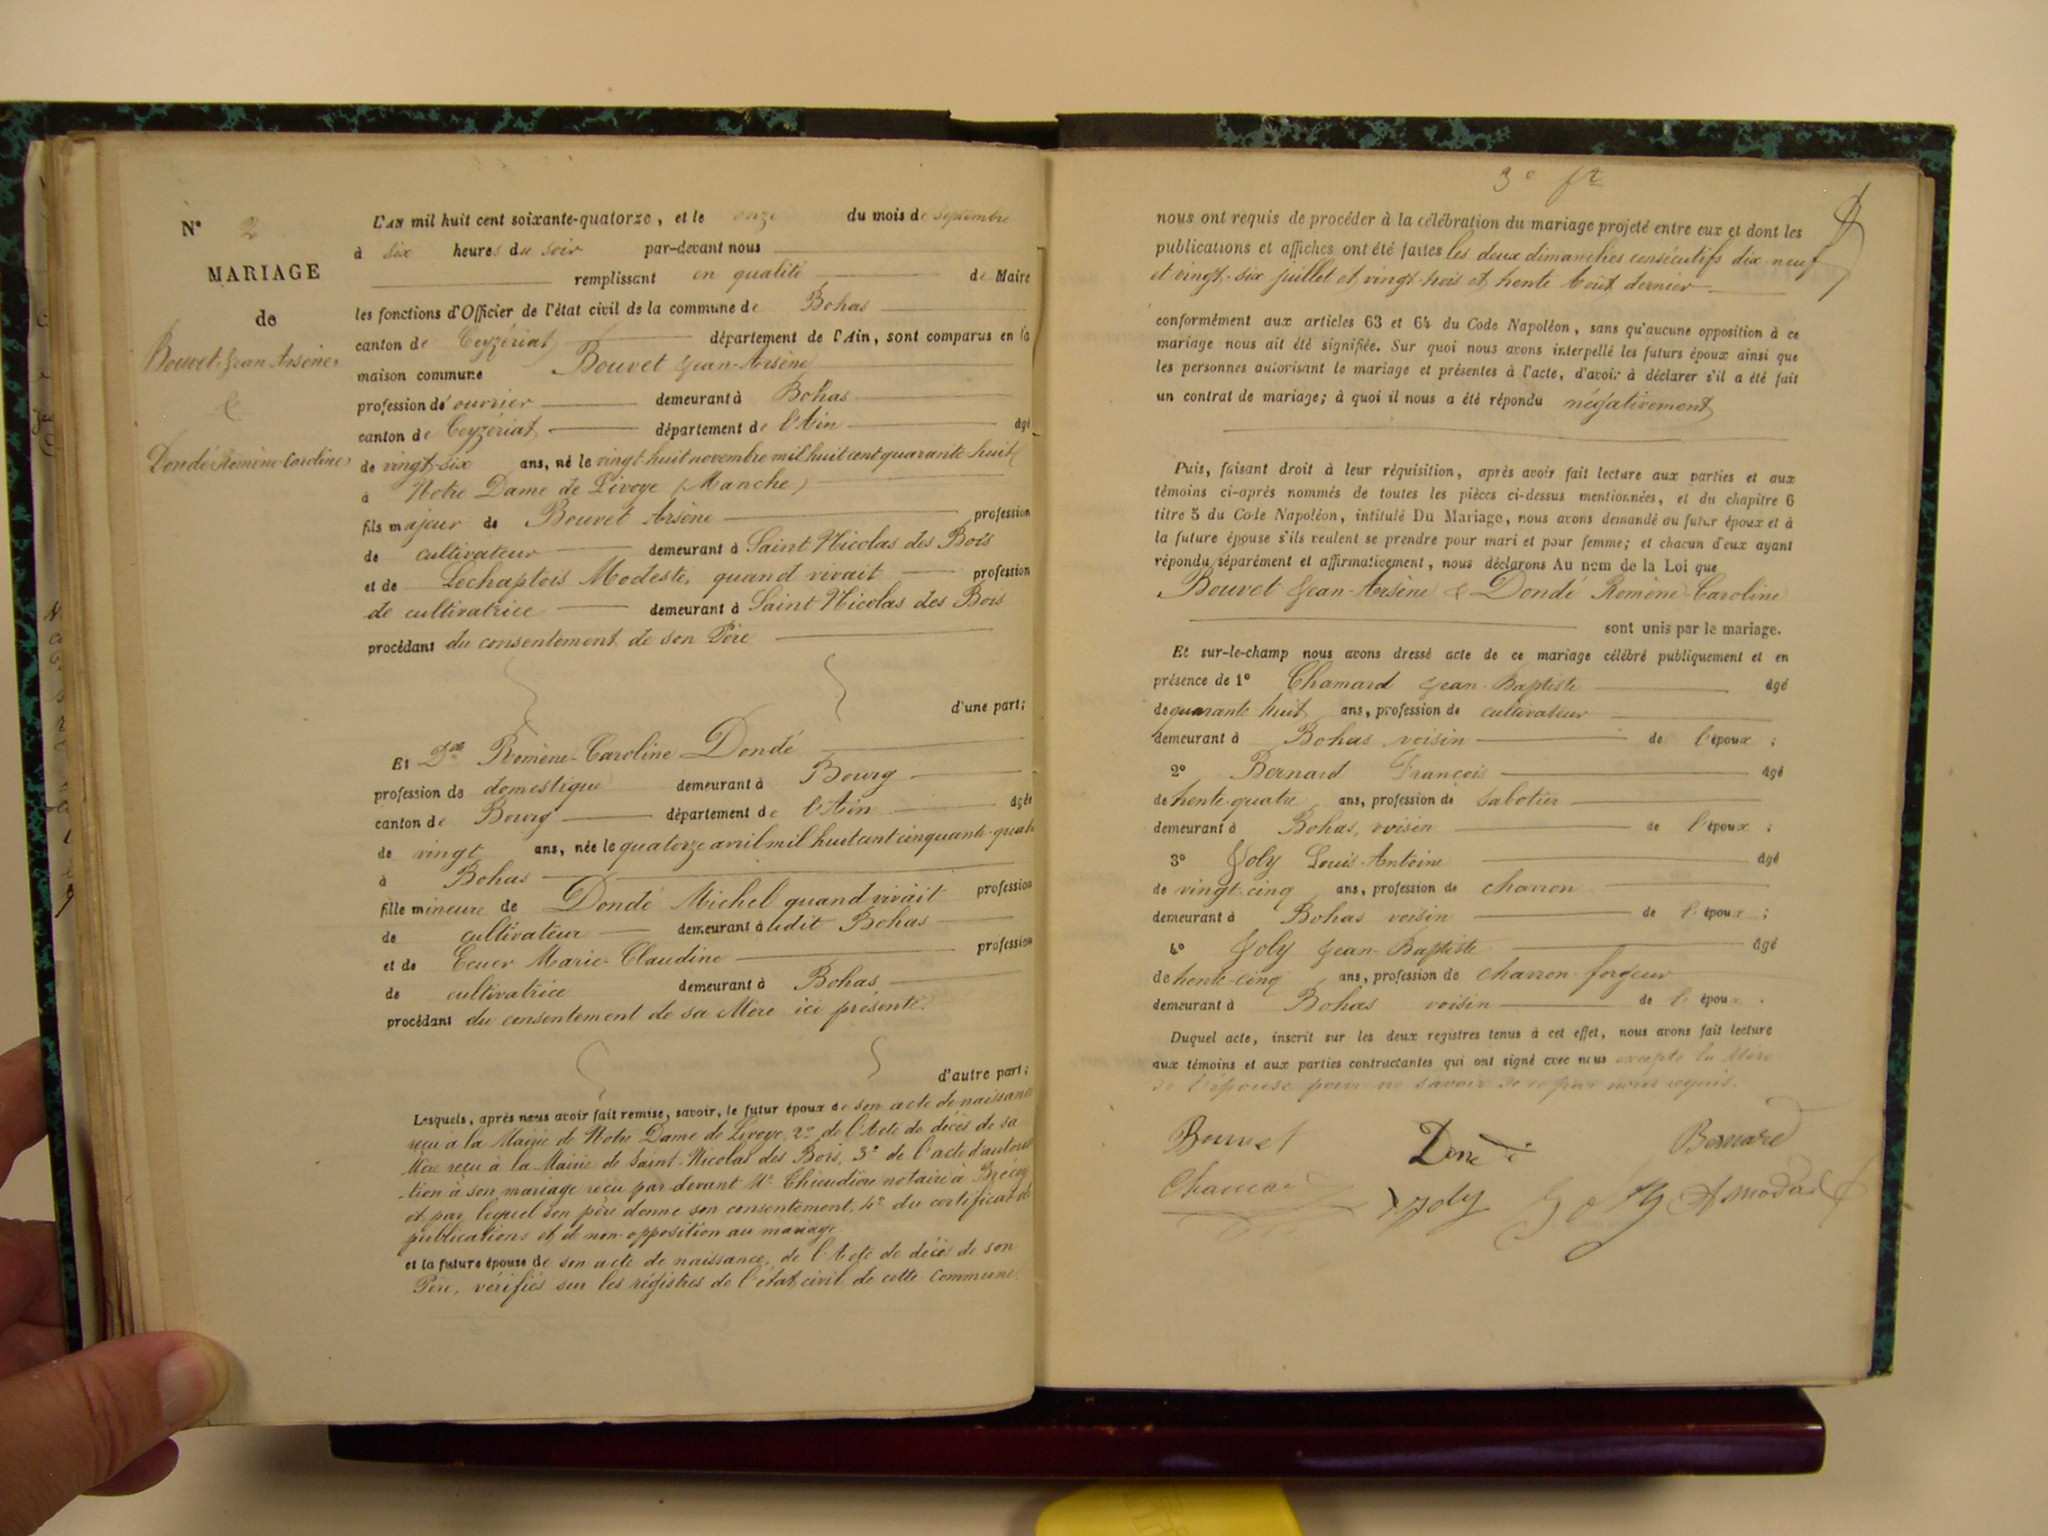 N° 2
MARIAGE
de
Bouvet Jean Arsène
&
Dondé Romène Caroline
L'AN mil huit cent soixante-quatorze, et le onze du mois de septembre
à six heures du soir par-devant nous
remplissant en qualité de Maire
les fonctions d'Officier de l'état civil de la commune de Bohas
canton de Ceyzériat département de l'Ain, sont comparus en la
maison commune Bouvet Jean-Arsène
profession de ouvrier demeurant à Bohas
canton de Ceyzériat département de l'Ain âgé
de vingt-six ans, né le vingt huit novembre mil huit cent quarante huit
à Notre Dame de Livoye (Manche)
fils majeur de Bouvet Arsène profession
de cultivateur demeurant à Saint Nicolas des Bois
et de Lechaptois Modeste, quand vivait profession
de cultivatrice demeurant à Saint Nicolas des Bois
procédant du consentement de son Père
d'une part;
Et Dlle Romène-Caroline Dondé
profession de domestique demeurant à Bourg
canton de Bourg département de l'Ain âgée
de vingt ans, née le quatorze avril mil huit cent cinquante-quatre
à Bohas
fille mineure de Dondé Michel quand vivait profession
de cultivateur demeurant à ledit Bohas
et de Ecuer Marie-Claudine profession
de cultivatrice demeurant à Bohas
procédant du consentement de sa Mère ici présente.
d'autre part;
Lesquels, après nous avoir fait remise, savoir, le futur époux de son acte de naissance
reçu à la Mairie de Notre Dame de Livoye, 2° de l'Acte de décès de sa
Mère reçu à la Mairie de Saint-Nicolas des Bois, 3° de l'acte d'autorisa
-tion à son mariage reçu par devant Me notaire à Brécey
et par lequel son père donne son consentement, 4° du certificat de
publications et de non opposition au mariage
et la future épouse de son acte de naissance, de l'Acte de décès de son
Père, vérifiés sur les régistres de l'état civil de cette commune.
3e ft
nous ont requis de procéder à la célébration du mariage projeté entre eux et dont les
publications et affiches ont été faites les deux dimanches consécutifs dix-neuf
et vingt-six juillet et vingt-trois et trente Août dernier
conformément aux articles 63 et 64 du Code Napoléon, sans qu'aucune opposition à ce
mariage nous ait été signifiée. Sur quoi nous avons interpellé les futurs époux ainsi que
les personnes autorisant le mariage et présentes à l'acte, d'avoir à déclarer s'il a été fait
un contrat de mariage; à quoi il nous a été répondu négativement
Puis, faisant droit à leur réquisition, après avoir fait lecture aux parties et aux
témoins ci-après nommés de toutes les pièces ci-dessus mentionnées, et du chapitre 6
titre 5 du Code Napoléon, intitulé Du Mariage, nous avons demandé au futur époux et à
la future épouse s'ils veulent se prendre pour mari et pour femme; et chacun d'eux ayant
répondu séparément et affirmativement, nous déclarons Au nom de la Loi que
Bouvet Jean-Arsène & Dondé Romène-Caroline
sont unis par le mariage.
Et sur-le-champ nous avons dressé acte de ce mariage célébré publiquement et en
présence de 1° Chamard Jean-Baptiste âgé
de quarante huit ans, profession de cultivateur
demeurant à Bohas voisin de l'époux;
2° Bernard François âgé
de trente-quatre ans, profession de sabotier
demeurant à Bohas, voisin de l'époux;
3° Joly Louis-Antoine âgé
de vingt-cinq ans, profession de charron
demeurant à Bohas voisin de l'époux;
4° Joly Jean-Baptiste âgé
de trente-cinq ans, profession de charron-forgeur
demeurant à Bohas voisin de l'époux.
Duquel acte, inscrit sur les deux registres tenus à cet effet, nous avons fait lecture
aux témoins et aux parties contractantes qui ont signé avec nous excepté la Mère
de l'épouse pour ne savoir de ce par nous requis.
Bouvet Dondé Bernard
Chamard Joly Joly